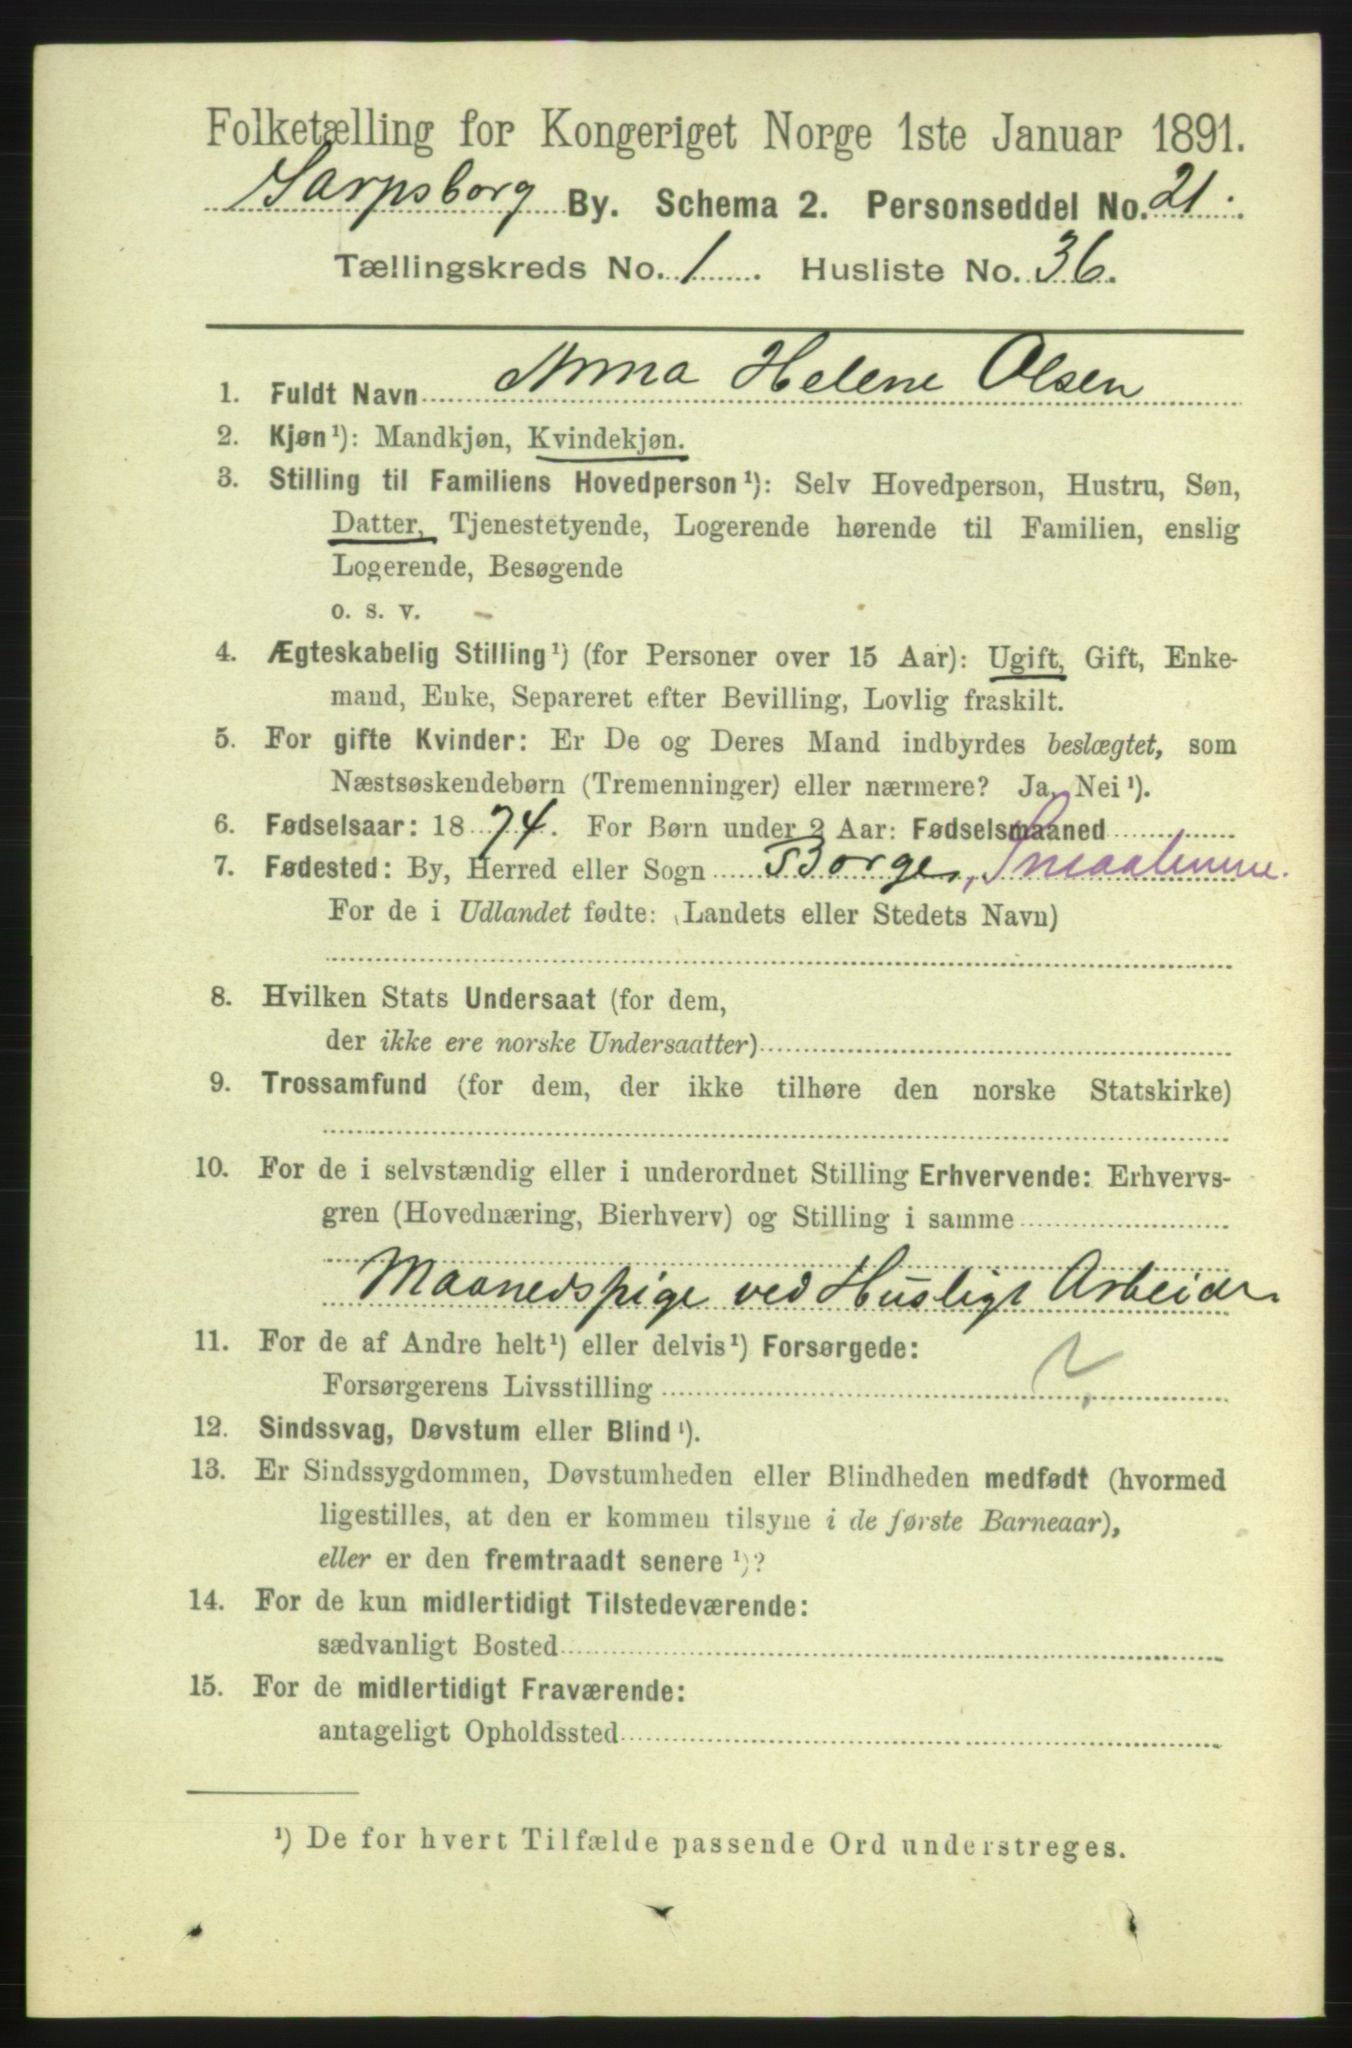 Folketælling for Kongeriget Norge 1ste Januar 1891.
Sarpsborg By. Schema 2. Personseddel No. 21.
Tællingskreds No. 1. Husliste No. 36.
1. Fuldt Navn Anna Helene Olsen
2. Kjøn¹): Mandkjøn, Kvindekjøn.
3. Stilling til Familiens Hovedperson¹): Selv Hovedperson, Hustru, Søn,
Datter, Tjenestetyende, Logerende hørende til Familien, enslig
Logerende, Besøgende
o. s. v.
4. Ægteskabelig Stilling¹) (for Personer over 15 Aar): Ugift, Gift, Enke-
mand, Enke, Separeret efter Bevilling, Lovlig fraskilt.
5. For gifte Kvinder: Er De og Deres Mand indbyrdes beslægtet, som
Næstsøskendebørn (Tremenninger) eller nærmere? Ja, Nei¹).
6. Fødselsaar: 1874. For Børn under 2 Aar: Fødselsmaaned
7. Fødested: By, Herred eller Sogn Borge, Smaalenene.
For de i Udlandet fødte: (Landets eller Stedets Navn)
8. Hvilken Stats Undersaat (for dem,
der ikke ere norske Undersaatter)
9. Trossamfund (for dem, der ikke tilhøre den norske Statskirke)
10. For de i selvstændig eller i underordnet Stilling Erhvervende: Erhvervs-
gren (Hovednæring, Bierhverv) og Stilling i samme
Maanedspige ved Husligt Arbeide
11. For de af Andre helt¹) eller delvis¹) Forsørgede:
Forsørgerens Livsstilling ?
12. Sindssvag, Døvstum eller Blind¹).
13. Er Sindssygdommen, Døvstumheden eller Blindheden medfødt (hvormed
ligestilles, at den er kommen tilsyne i de første Barneaar),
eller er den fremtraadt senere¹)?
14. For de kun midlertidigt Tilstedeværende:
sædvanligt Bosted
15. For de midlertidigt Fraværende:
antageligt Opholdssted
¹) De for hvert Tilfælde passende Ord understreges.